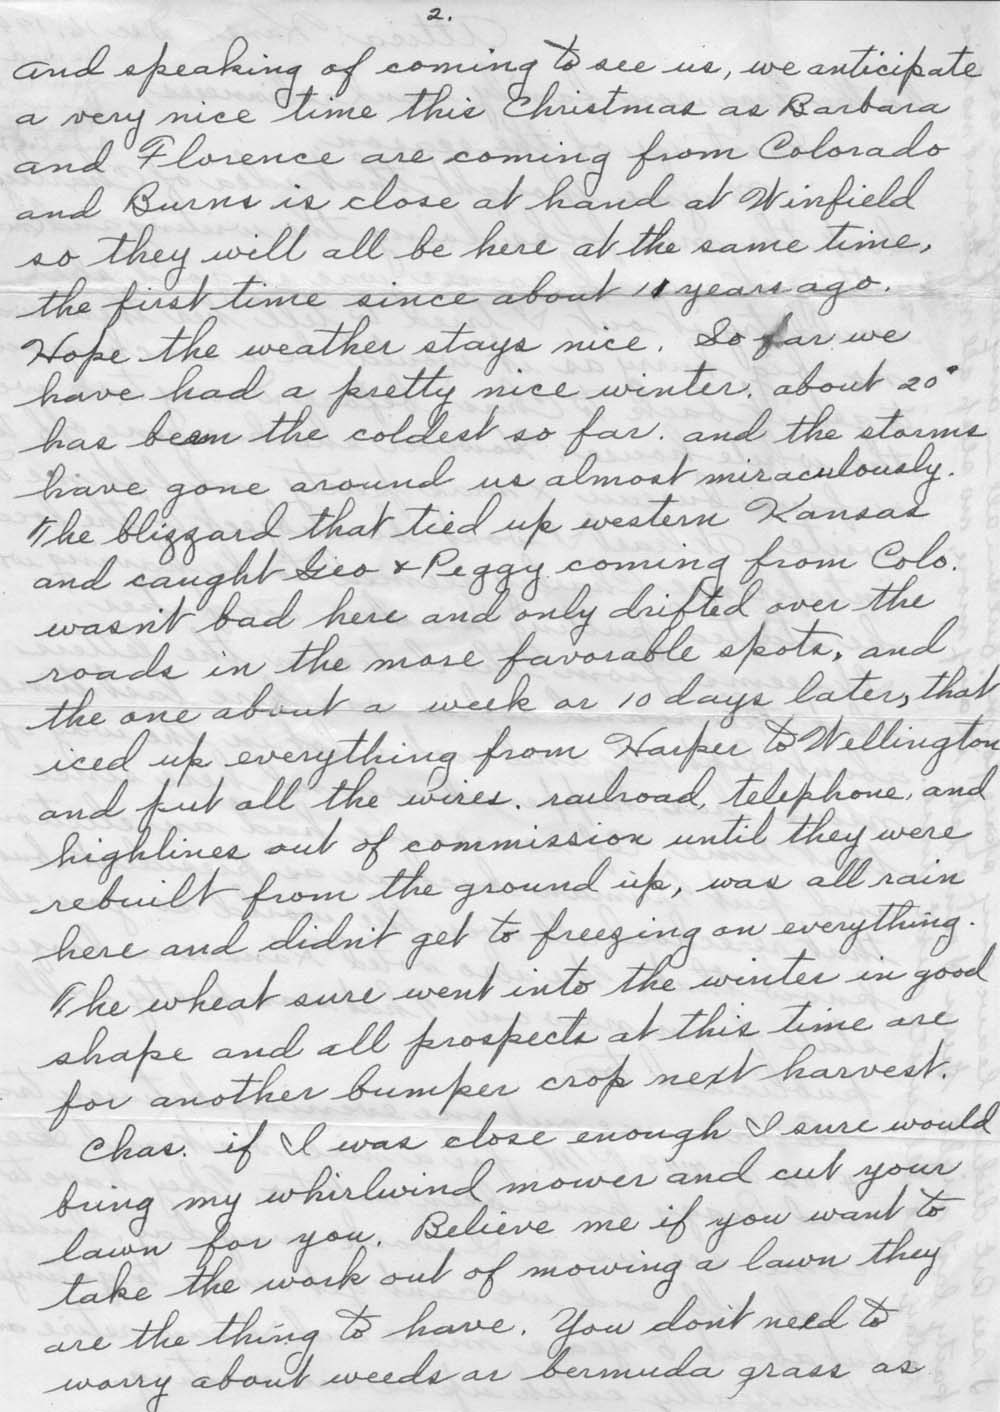 2.
and speaking of coming to see us, we anticipate
a very nice time this Christmas as Barbara
and Florence are coming from Colorado
and Burns is close at hand at Winfield
so they will all be here at the same time,
the first time since about 11 years ago.
Hope the weather stays nice. So far we
have had a pretty nice winter. about 20°
has been the coldest so far. and the storms
have gone around us almost miraculously.
The blizzard that tied up western Kansas
and caught Geo & Peggy coming from Colo.
wasn't bad here and only drifted over the
roads in the more favorable spots, and
the one about a week or 10 days later, that
iced up everything from Harper to Wellington
and put all the wires. railroad, telephone, and
highlines out of commission until they were
rebuilt from the ground up, was all rain
here and didn't get to freezing on everything.
The wheat sure went into the winter in good
shape and all prospects at this time are
for another bumper crop next harvest.
Chas. if I was close enough I sure would
bring my whirlwind mower and cut your
lawn for you. Believe me if you want to
take the work out of mowing a lawn they
are the thing to have. You don't need to
worry about weeds or bermuda grass as